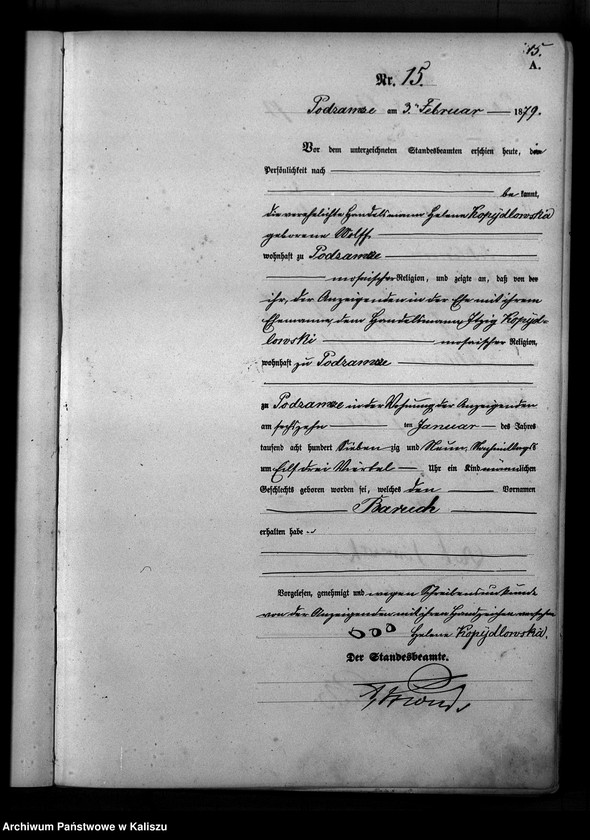 15.
A.
Nr. 15.
Podzamze am 3ᵗ Februar 1879.
Vor dem unterzeichneten Standesbeamten erschien heute, der
Persönlichkeit nach
be kannt,
die verehelichte Handelsmann Helene Kopydlowska
geborene Wolff
wohnhaft zu Podzamze
mosaischer Religion, und zeigte an, daß von der
ihr, der Anzeigenden in der Ehe mit ihrem
Ehemanne, dem Handelsmann Itzig Kopyd-
lowski mosaischer Religion,
wohnhaft zu Podzamze
zu Podzamze in der Wohnung der Anzeigenden
am sechszehn ten Januar des Jahres
tausend acht hundert Sieben zig und Neun, Vormittags
um Eilf drei Viertel Uhr ein Kind männlichen
Geschlechts geboren worden sei, welches den Vornamen
Baruch
erhalten habe
Vorgelesen, genehmigt und wegen Schreibensunkunde
von der Anzeigenden mit ihren Handzeichen versehen
ooo Helene Kopydlowska.
Der Standesbeamte.
Archiwum Państwowe w Kaliszu